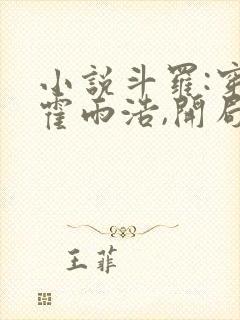 小說斗羅:穿
霍雨浩,開局
王菲